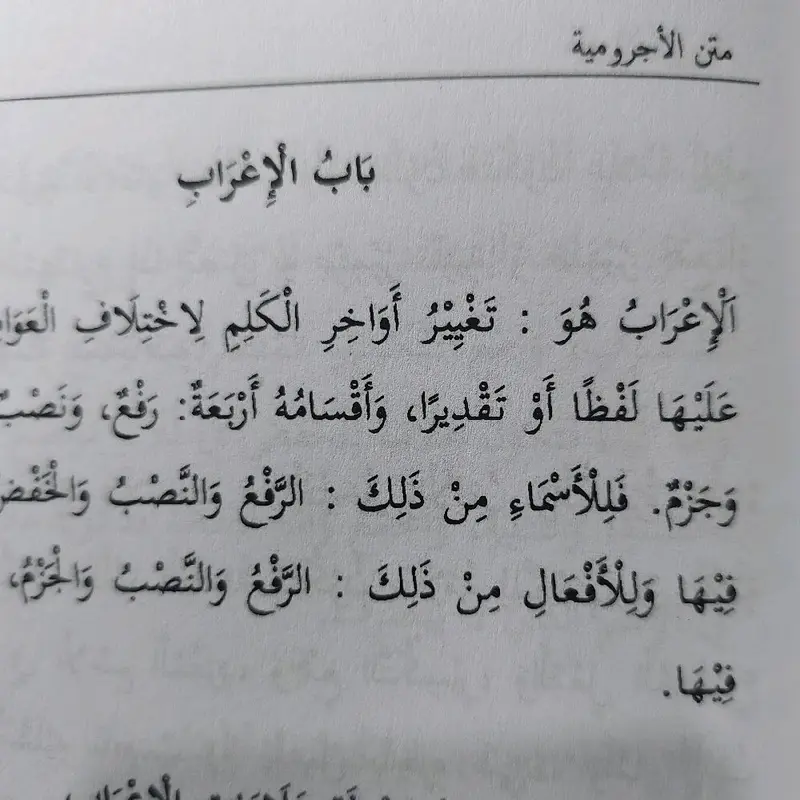 متن الأجرومية
بَابُ الْإِعْرَابِ
اَلْإِعْرَابُ هُوَ : تَغْيِيْرُ أَوَاخِرِ الْكَلِمِ لِاخْتِلَافِ
عَلَيْهَا لَفْظًا أَوْ تَقْدِيرًا، وَأَقْسَامُهُ أَرْبَعَةٌ: رَفْعٌ، وَنَصْبٌ
وَجَزْمٌ. فَلِلْأَسْمَاءِ مِنْ ذَلِكَ : الرَّفْعُ وَالنَّصْبُ وَالْخَفْضُ
فِيْهَا وَلِلْأَفْعَالِ مِنْ ذَلِكَ : الرَّفْعُ وَالنَّصْبُ وَالْجَزْمُ،
فِيْهَا.